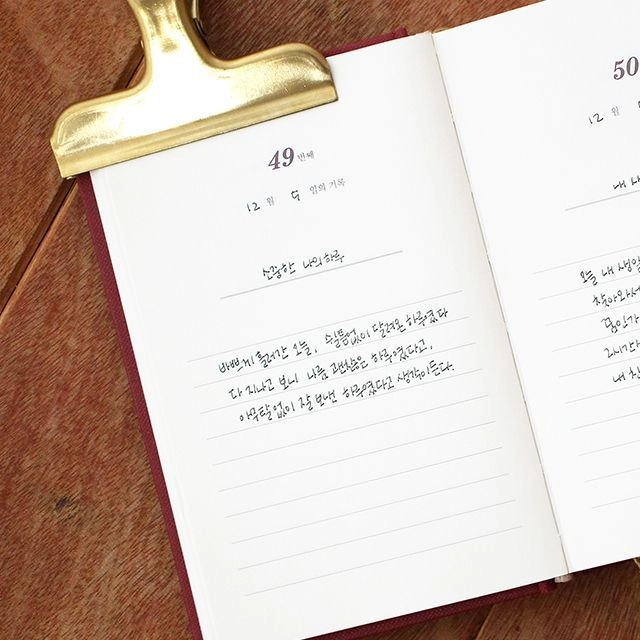 49 번째
12 월 9 일의 기록
소중한 나의 하루
바쁘게 흘러간 오늘, 쉴틈없이 달려온 하루였다
다 지나고 보니 나름 괜찮은 하루였다고,
아무탈 없이 잘 보낸 하루였다고 생각이 든다.
50
12 월
내 생
오늘 내 생일
찾아와서
내 친